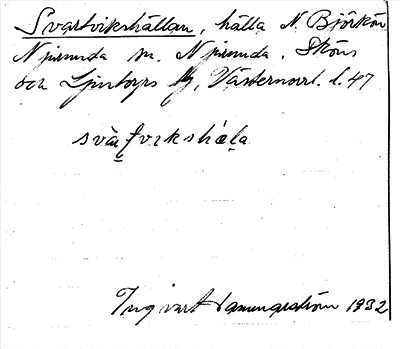 Svartvikshällan, hälla N. Björkön
Njurunda sn. Njurunda, Sköns
och Ljustorps tg, Västernorrl. l. 47
svàṭfvɩkshäla
Ingvart Hammarström 1932